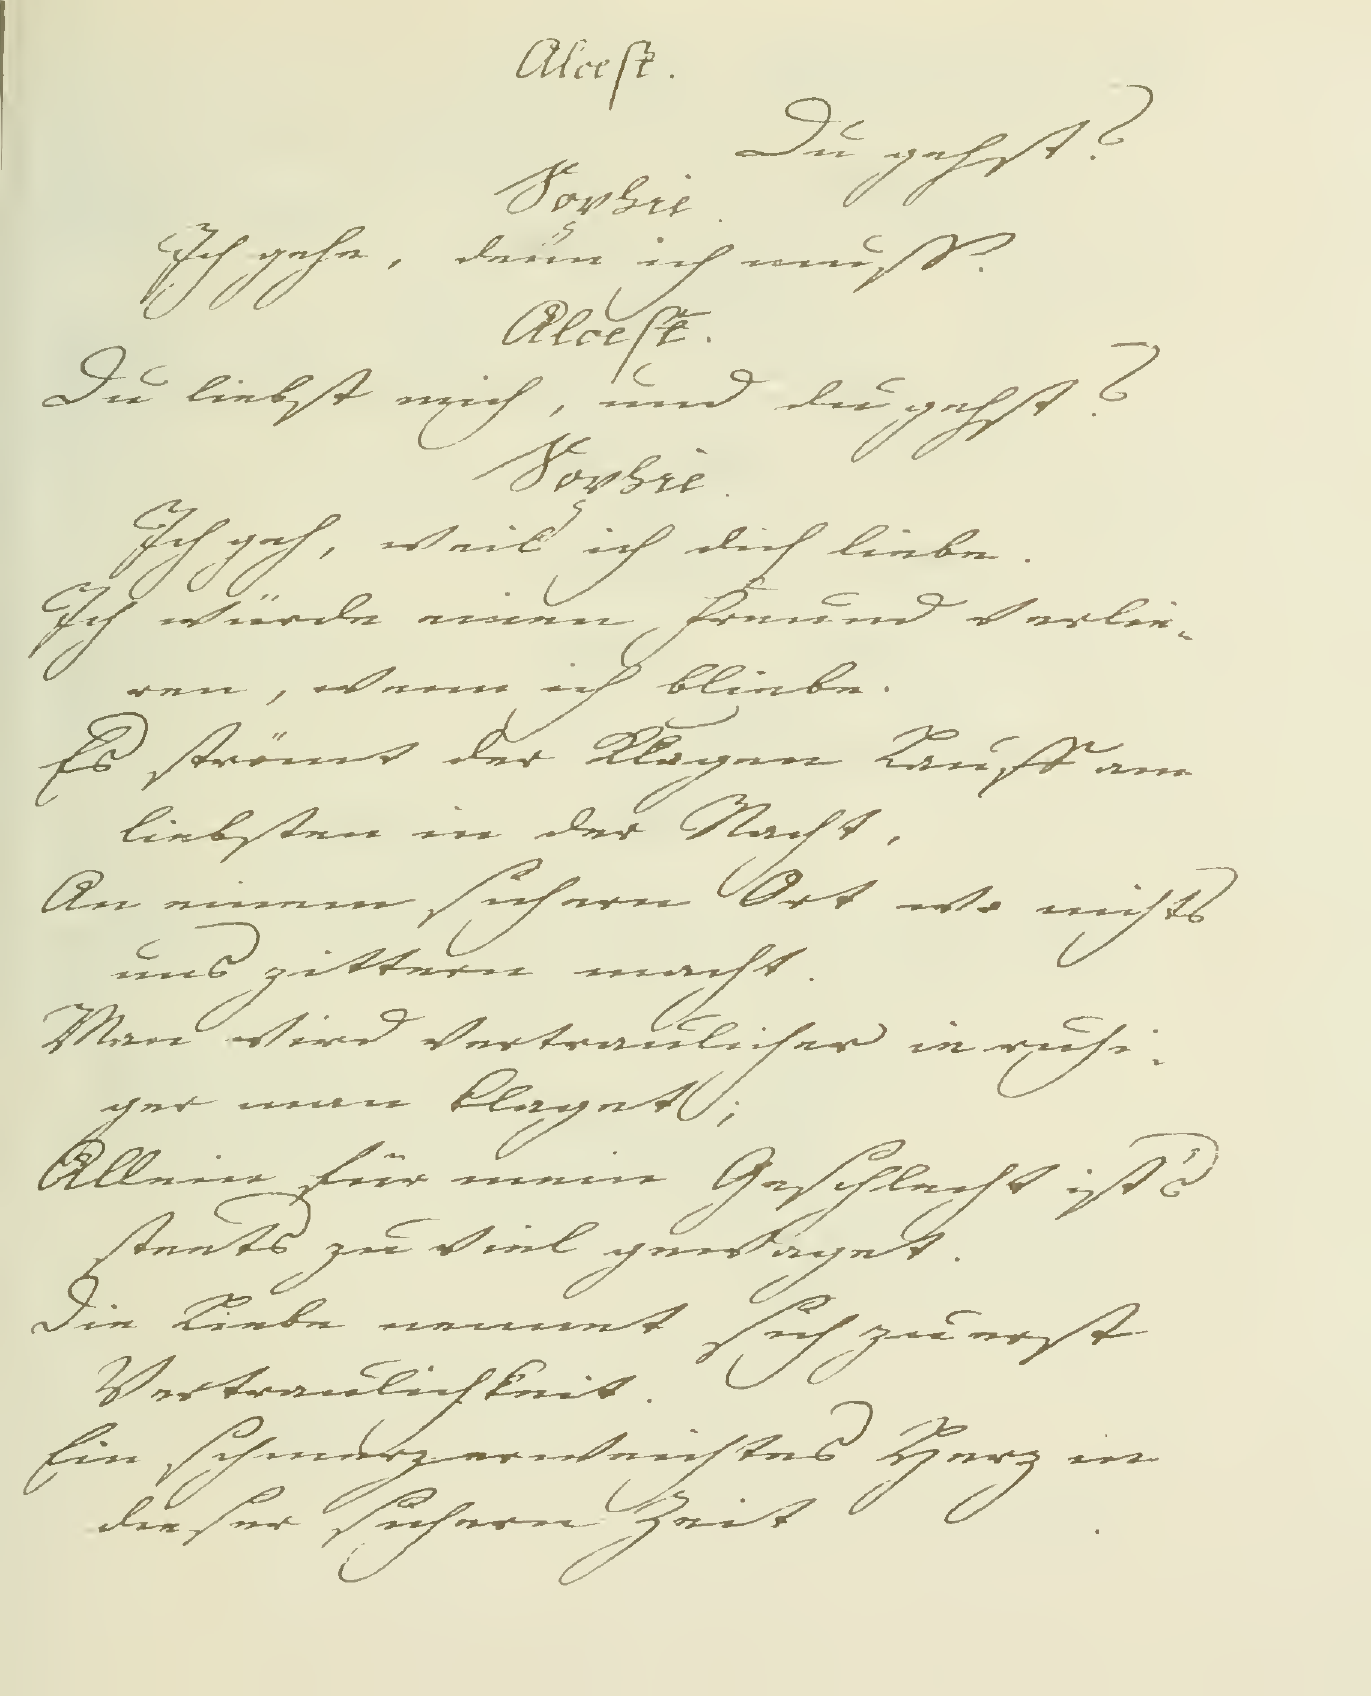 Alcest.
Du gehst?
Sophie.
Ich gehe, denn ich muß.
Alcest.
Du liebst mich, und du gehst?
Sophie.
Ich geh, weil ich dich liebe.
Ich würde einen Freund verlie-
ren, wenn ich bliebe.
Es strömt der Klagen Lauff am
liebsten in der Nacht,
An einem sichern Ort wo nichts
uns zittern macht.
Man wird vertraulicher ie ruhi-
ger man klaget;
Allein für mein Geschlecht ist's
steets zu viel gewaget.
Die Liebe nennet sich zuerst
Vertraulichkeit.
Ein schmerzerweichtes Herz in
dieser sichern Zeit